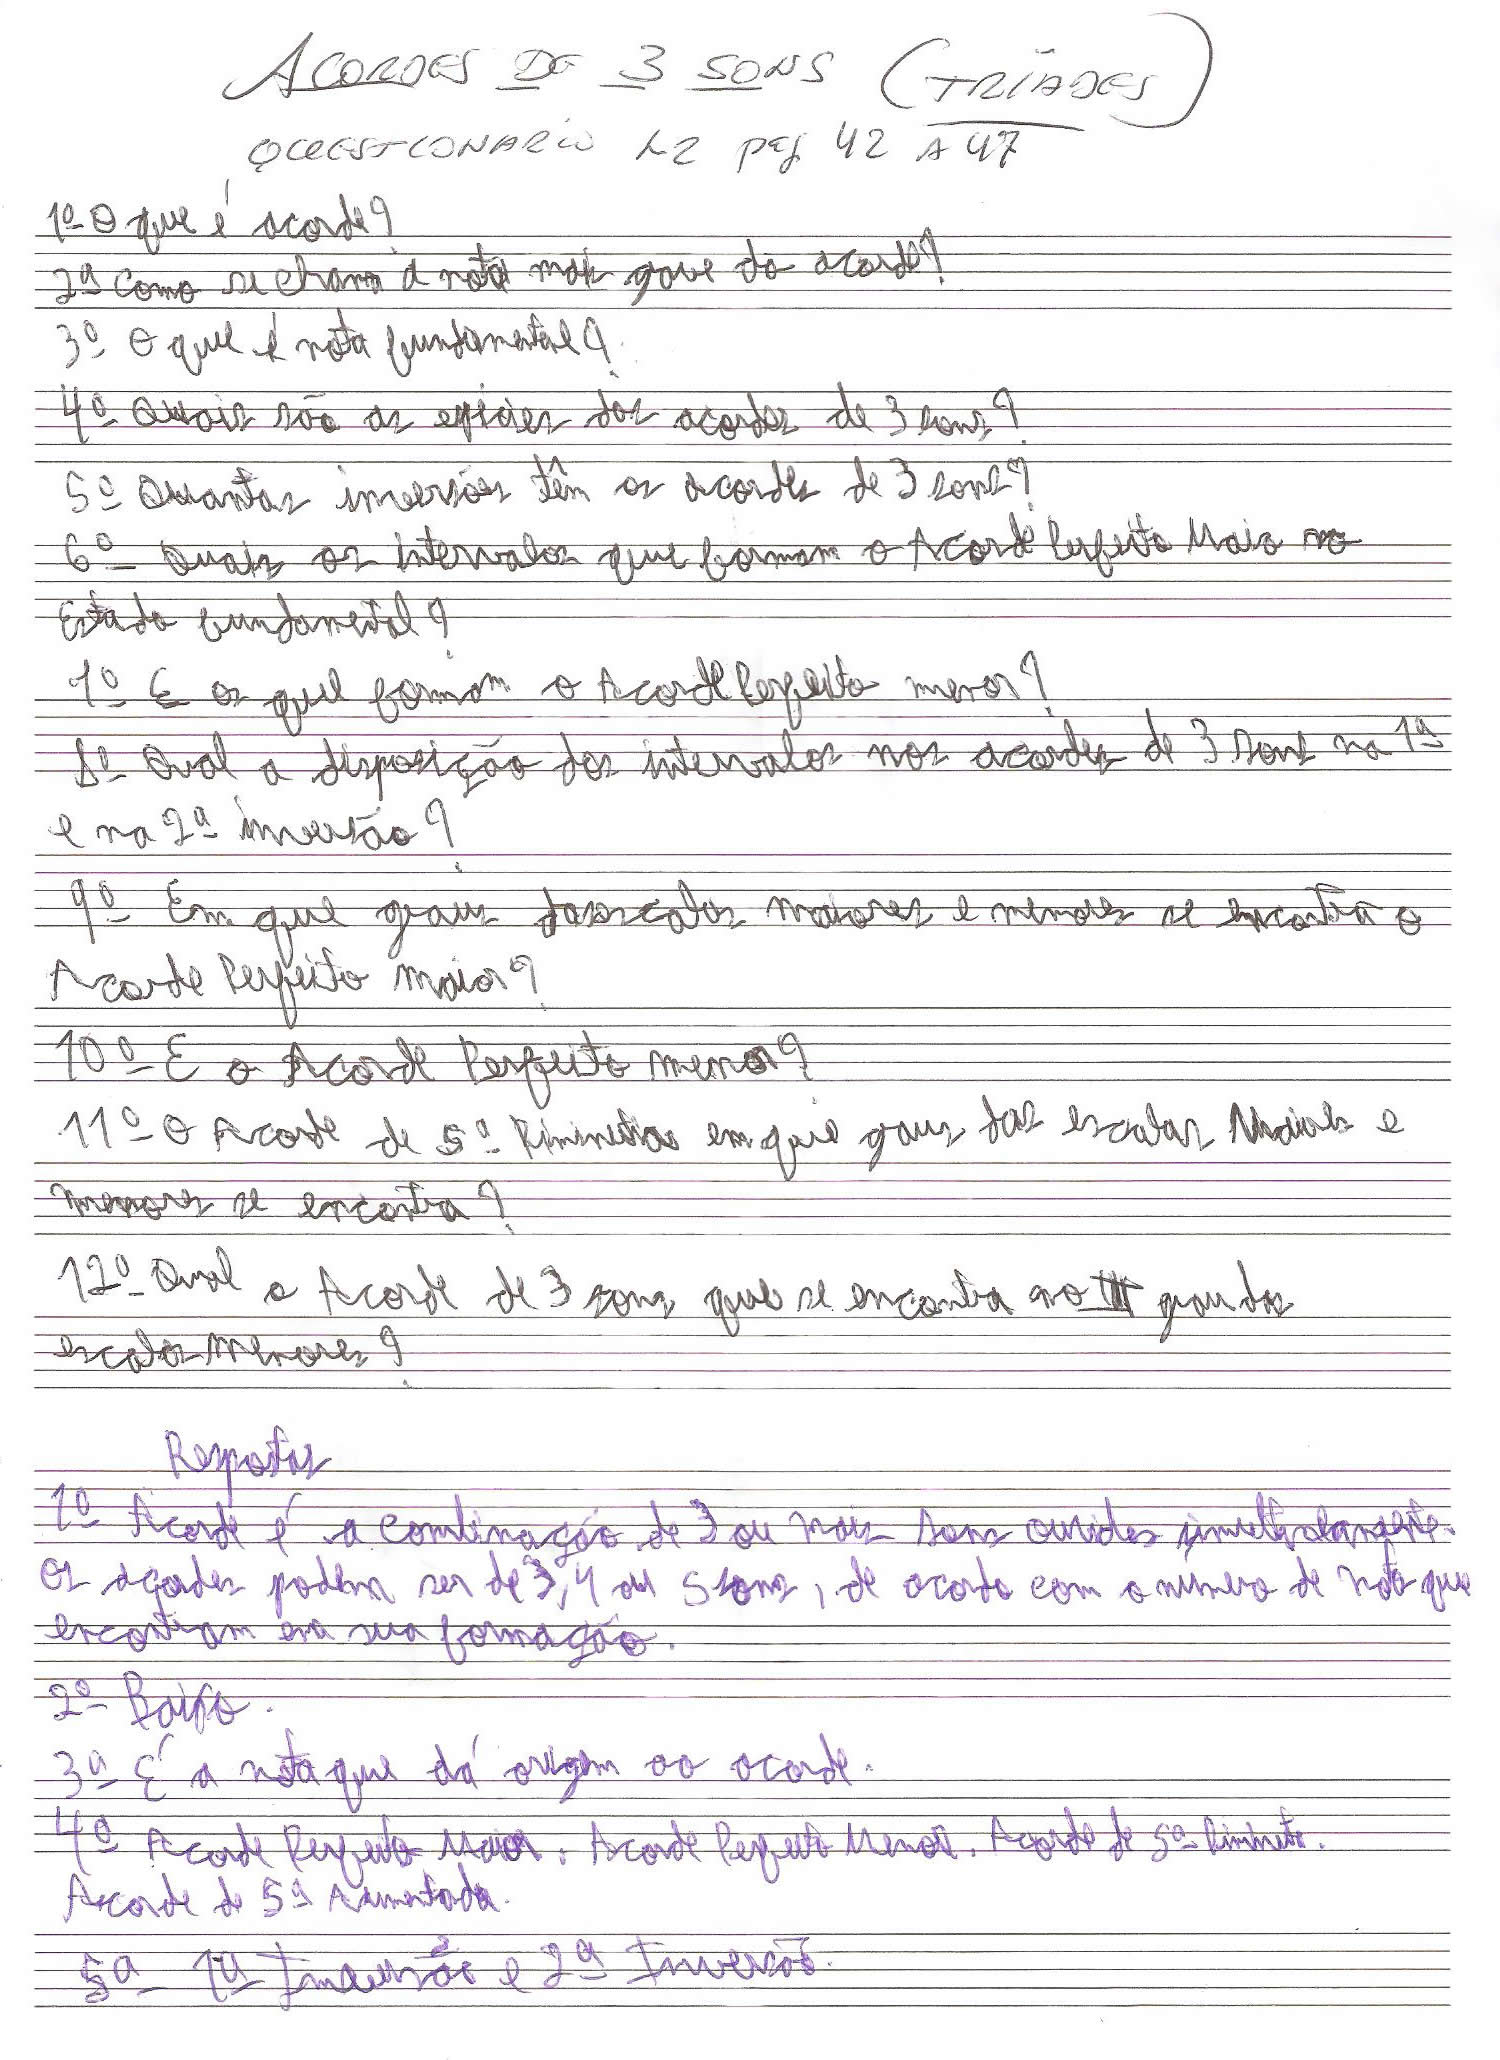 ACORDES DE 3 SONS (TRÍADES)
QUESTIONARIO L2 pag 42 A 47
1º O que é acorde?
2ª Como se chama a nota mais grave do acorde?
3º O que é nota fundamental?
4º Quais são as epécies dos acordes de 3 sons?
5º Quantas inversões têm os acordes de 3 sons?
6º Quais os intervalos que formam o Acorde Perfeito Maio no
Estado fundamental?
7º E os que formam o Acorde Perfeito menor?
8º Qual a disposição dos intervalos nos acordes de 3 sons na 1ª
e na 2ª inversão?
9º Em que graus das escalas maiores e menores se encontra o
Acorde Perfeito maior?
10º E o Acorde Perfeito menor?
11º O Acorde de 5ª em que graus das escalas Maiores e
menores se encontra?
12º Qual o Acorde de 3 sons que se encontra no III grau das
escalas menores?
Respostas
1º Acorde é a combinação de 3 ou mais sons ouvidos simultaneamente.
Os acordes podem ser de 3, 4 ou 5 sons, de acordo com o número de nota que
encontram em sua formação.
2º Baixo.
3ª É a nota que dá origem ao acorde.
4º Acorde Perfeito Maior. Acorde Perfeito Menor. Acorde de 5ª Diminuta.
Acorde de 5ª Aumentada.
5ª 1ª Inversão e 2ª Inversão.